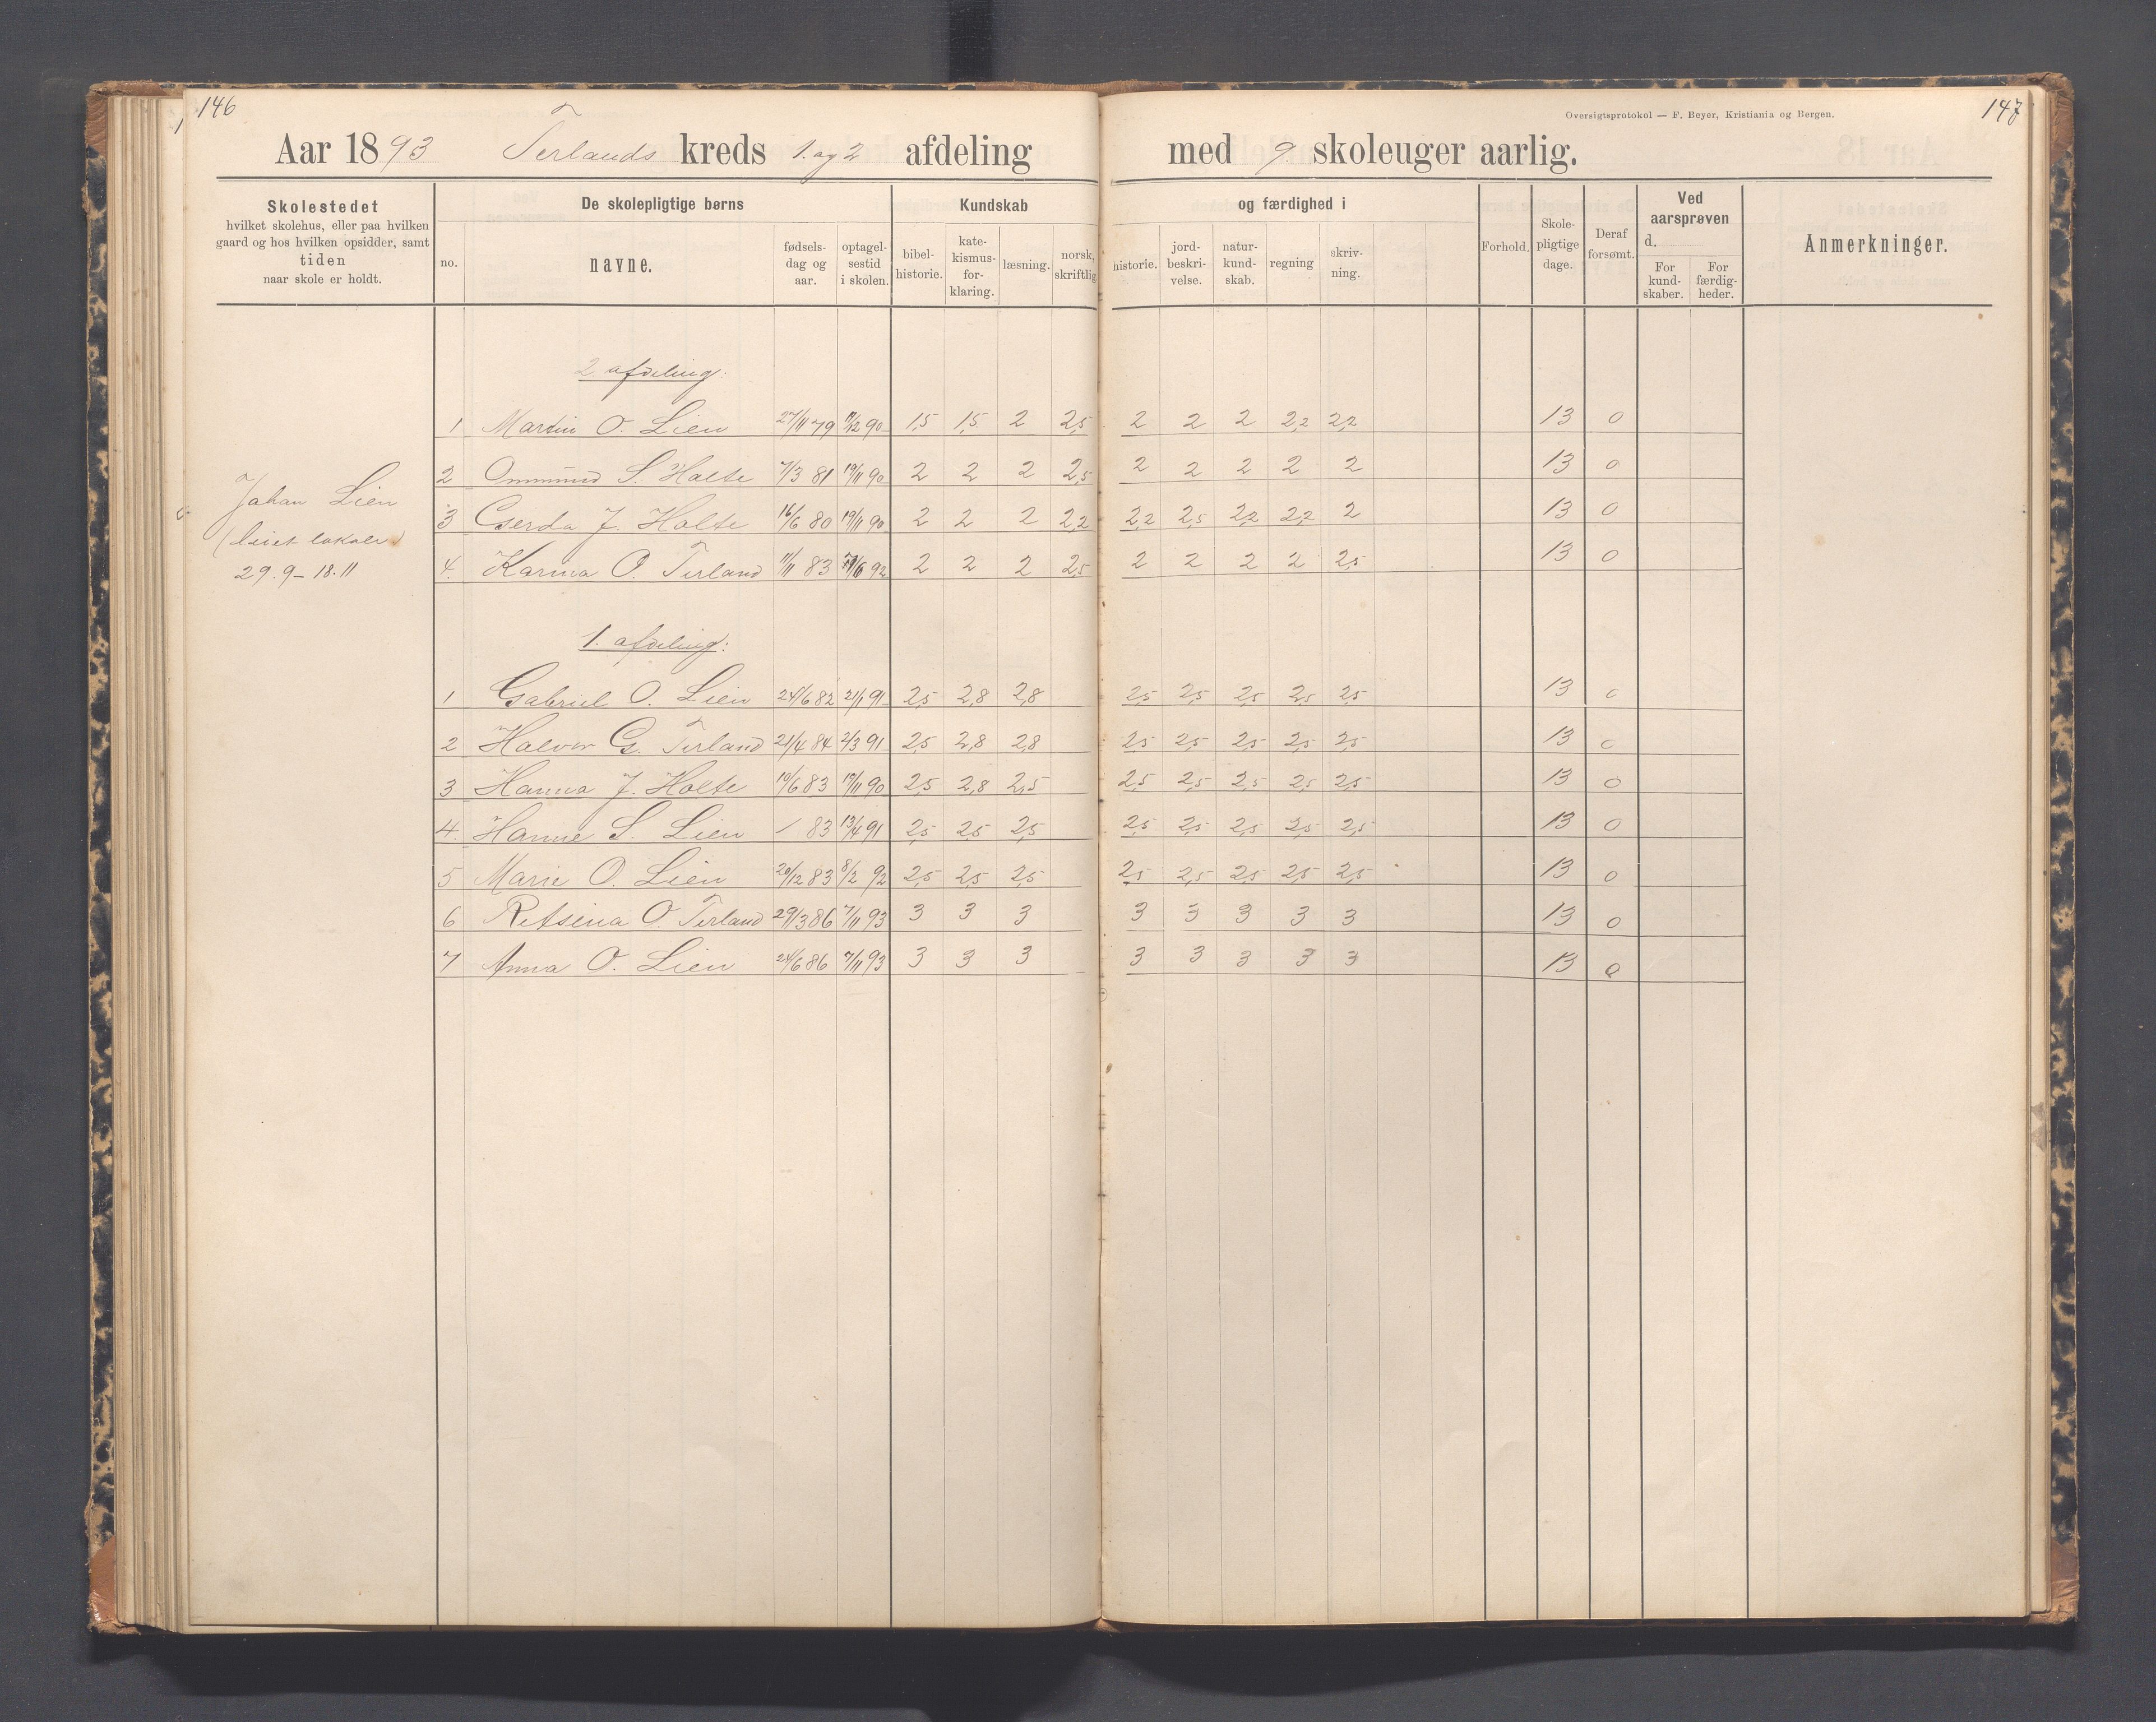 146
Aar 1893 Terlands kreds 1. og 2 afdeling
Skolestedet
hvilket skolehus, eller paa hvilken
gaard og hos hvilken opsidder, samt
tiden
naar skole er holdt.
De skolepligtige børns
no.
navne.
fødsels-
dag og
aar.
optagel-
sestid
i skolen.
Kundskab
bibel-
historie.
kate-
kismus-
for-
klaring.
læsning.
norsk,
skriftlig
Oversigtsprotokol — F. Beyer, Kristiania og Bergen.
147
med 9. skoleuger aarlig.
og færdighed i
historie.
jord-
beskri-
velse.
natur-
kund-
skab.
regning
skriv-
ning.
Forhold.
Skole-
pligtige
dage.
Deraf
forsømt.
Ved
aarsprøven
d.
For
kund-
skaber.
For
færdig-
heder.
Anmerkninger.
Johan Lien
(leiet lokale)
29.9 – 18.11
2 afdeling:
1 Martin O. Lien 27/11 79 11/12 90 1,5 1,5 2 2,5 2 2 2 2,2 2,2 13 0
2 Ommund S. Holte 7/3 81 19/11 90 2 2 2 2,5 2 2 2 2 2 13 0
3 Gerda J. Holte 16/6 80 19/11 90 2 2 2 2,2 2,2 2,5 2,2 2,2 2 13 0
4. Karina O. Terland 11/11 83 92 2 2 2 2,5 2 2 2 2 2,5 13 0
1. afdeling:
1 Gabriel O. Lien 24/6 82 21/1 91 2,5 2,8 2,8 2,5 2,5 2,5 2,5 2,5 13 0
2 Halvor G. Terland 21/4 84 2/3 91 2,5 2,8 2,8 2,5 2,5 2,5 2,5 2,5 13 0
3 Hanna J. Holte 19/6 83 19/11 90 2,5 2,8 2,5 2,5 2,5 2,5 2,5 2,5 13 0
4. Hanne S. Lien / 83 13/4 91 2,5 2,5 2,5 2,5 2,5 2,5 2,5 2,5 13 0
5 Marie O. Lien 20/12 83 8/2 92 2,5 2,5 2,5 2,5 2,5 2,5 2,5 2,5 13 0
6 Retsena O. Terland 29/3 86 7/11 93 3 3 3 3 3 3 3 3 13 0
7 Anna O. Lien 24/6 86 7/11 93 3 3 3 3 3 3 3 3 13 0